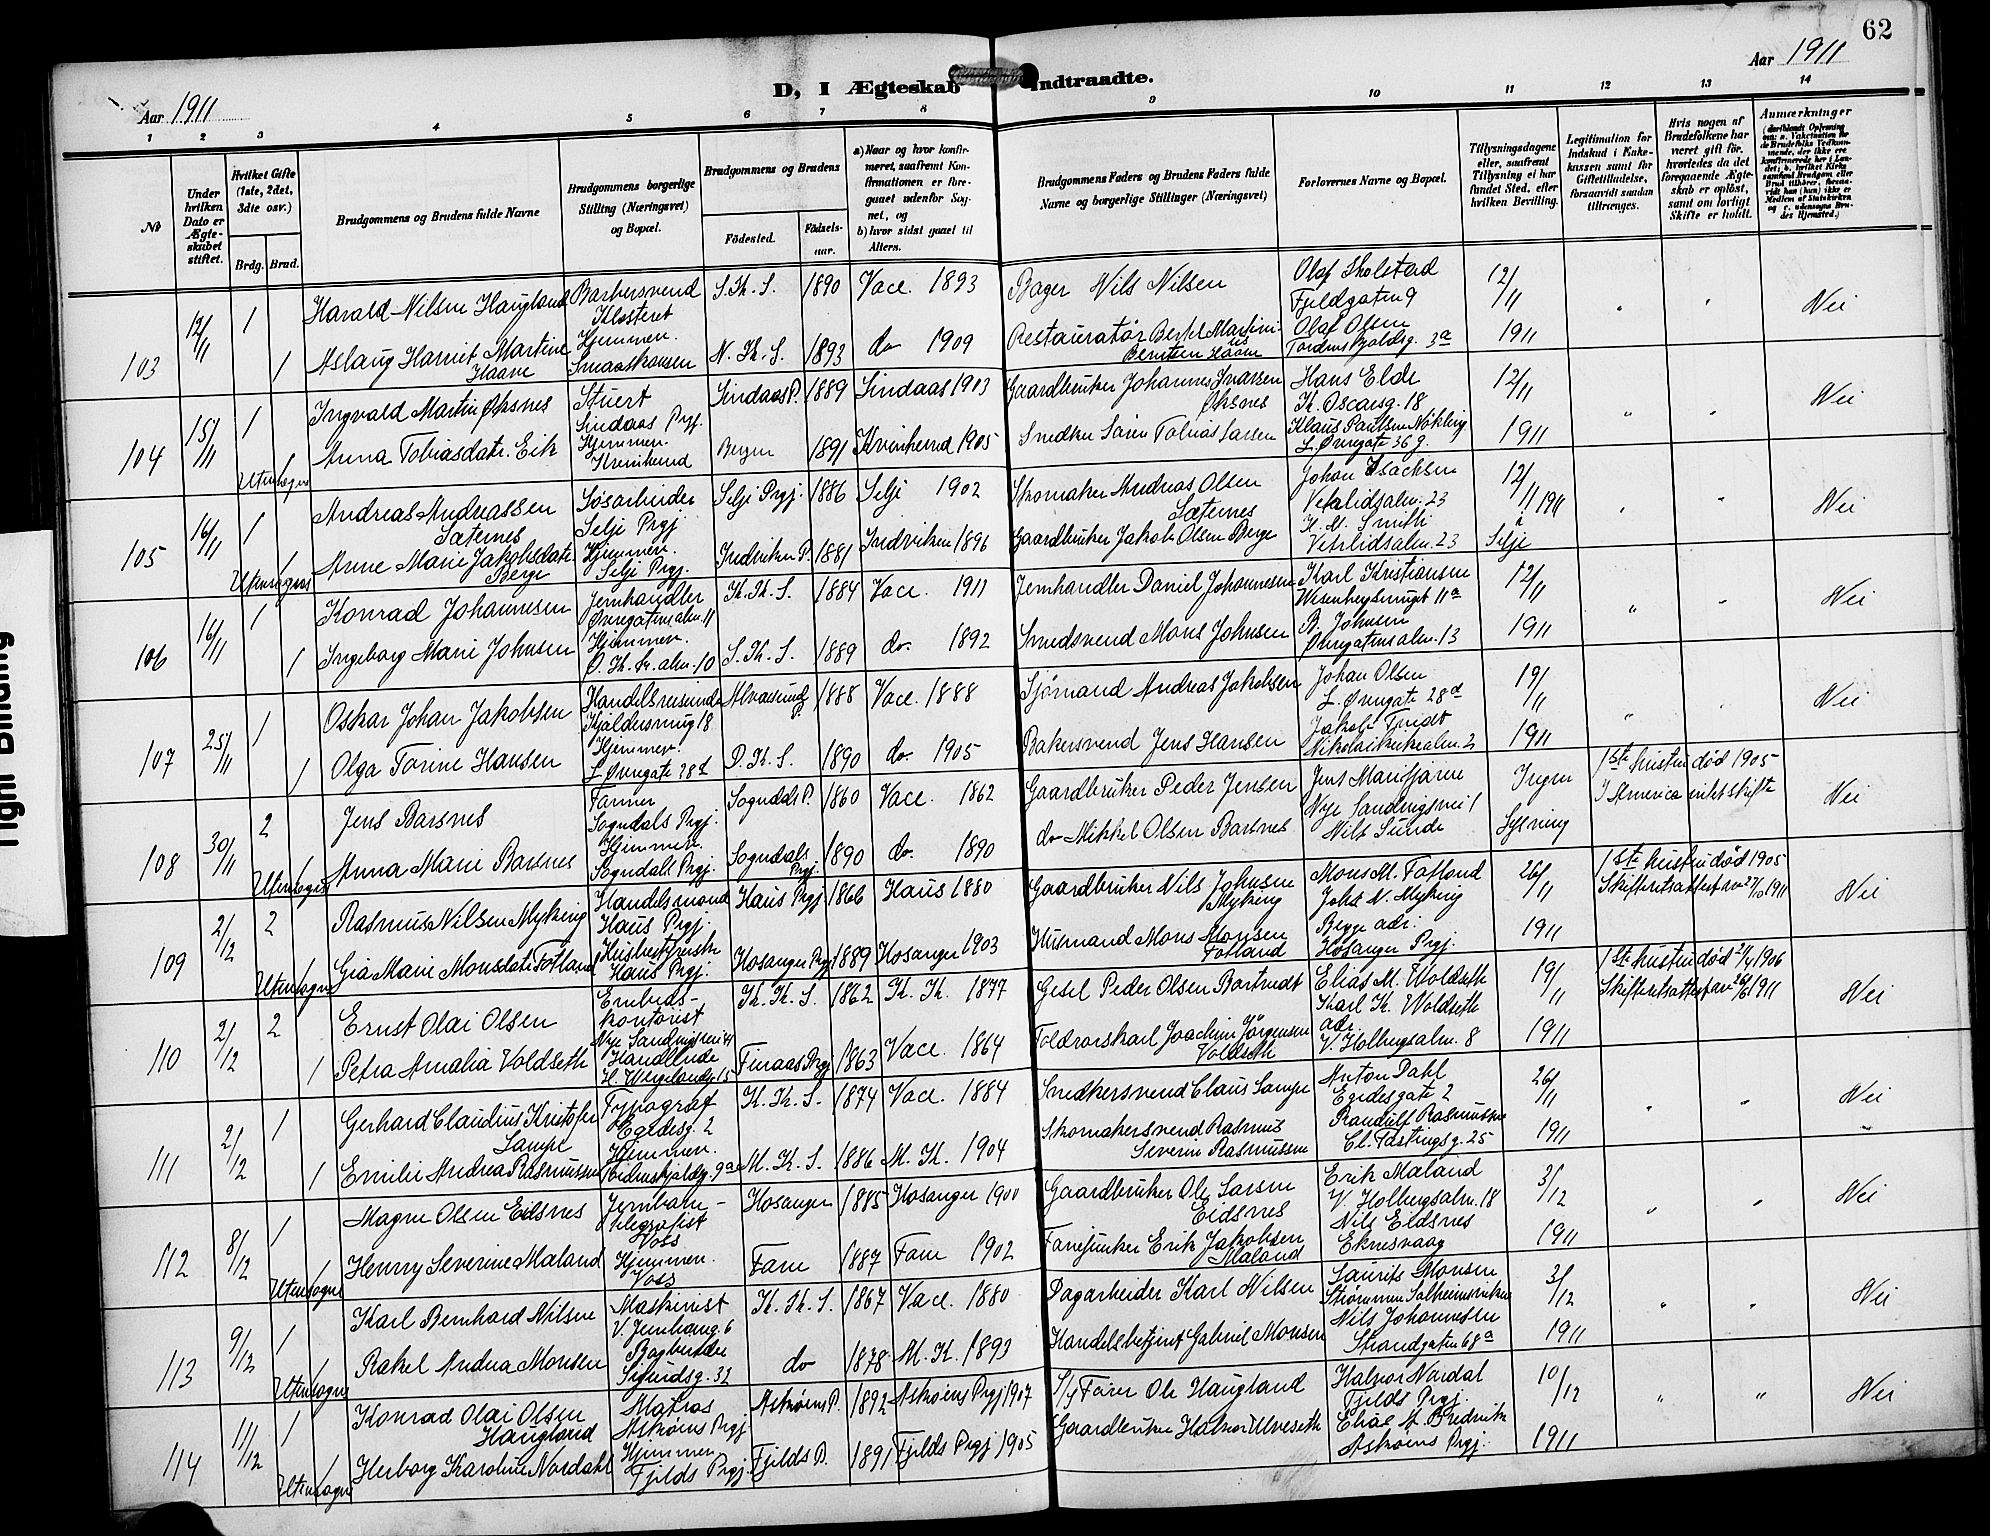 62
Aar 1911
Aar 1911
D, I Ægteskab Indtraadte.
1 2 3 4 5 6 7 8 9 10 11 12 13 14
No
Under hvilken Dato er Ægteskabet stiftet.
Hvilket Gifte (1ste, 2det, 3die osv.)
Brdg. Brud.
Brudgommens og Brudens fulde Navne
Brudgommens borgerlige Stilling (Næringsvei) og Bopæl.
Brudgommens og Brudens
Födested.
Födselsaar.
a) Naar og hvor konfirmeret, saafremt Konfirmationen er foregaaet udenfor Sognet, og b) hvor sidst gaaet til Alters.
Brudgommens Faders og Brudens Faders fulde Navne og borgerlige Stillinger (Næringsvei)
Forlovernes Navne og Bopæl.
Tillysningsdagene eller, saafremt Tillysning ei har fundet Sted, efter hvilken Bevilling.
Legitimation for Indskud i Enkekassen samt for Giftetilladelse, forsaavidt saadan tiltrænges.
Hvis nogen af Brudefolkene har været gift för, hvorledes da det foregaaende Ægteskab er oplöst, samt om lovligt Skifte er holdt.
Anmærkninger
103 12/11 1 Harald Nilsen Haugland Barbersvend Klosteret S. K. S. 1890 Vacc. 1893 Bager Nils Nilsen Olaf Skolstad Fjeldgaten 9 12/11 " " Nei
1 Aslaug Harriet Martine Haave Hjemmen. Smaastrandsen N. K. S. 1893 do 1909 Restauratør Bertel Martinius Berntsen Haave Olaf Olsen Tordenskjoldsg. 3a 1911
104 15/11 1 Ingvald Martin Øksnes Stuert Lindaas Prgj. Lindaas P. 1889 Lindaas 1903 Gaardbruker Johannes Ivarsen Øksnes Hans Elde K. Oscarsg. 18 12/11 " " Nei
Utensogns 1 Anna Tobiasdatr. Eik Hjemmen. Kvinherred Bergen 1891 Kvinherred 1905 Snedker Sören Tobias Larsen Klaus Paulsen Nökling L. Øvregate 36 g. 1911
105 16/11 1 Andreas Andreassen Sæternes Løsarbeider Selje Prgj Selje Prgj. 1886 Selje 1902 Skomaker Andreas Olsen Sæternes Johan Isachsen Vetrlidsalm. 23 12/11 1911 " " Nei
Utensogns 1 Anne Marie Jakobsdatr Berge Hjemmen. Selje Prgj. Indviken P. 1881 Indviken 1896 Gaardbruker Jakob Olsen Berge K. N. Smith Vetrlidsalm. 23 i Selje
106 16/11 1 Konrad Johannesen Jernhandler Øvregatensalm. 11 K. K. S. 1884 Vacc. 1911 Jernhandler Daniel Johannesen Karl Kristiansen Wesenbergsmuget 11a 12/11 " " Nei
1 Ingeborg Marie Johnsen Hjemmen. Ø. K. Kr. alm. 10 S. K. S. 1889 do. 1892 Smedsvend Mons Johnsen B. Johnsen Øvregatensalm. 13 1911
107 25/11 1 Oskar Johan Jakobsen Handelsreisende Kjeldersmug 18 Alversund P. 1888 Vacc. 1888 Sjömand Andreas Jakobsen Johan Olsen L. Øvregate 28d 19/11 " " Nei
1 Olga Torine Hansen Hjemmen. L. Øvregate 28d D. K. S. 1890 do. 1905 Bakersvend Jens Hansen Jakob Tvedt Nikolaikirkealm. 2 1911
108 30/11 2 Jens Barsnes Farmer Sogndals Prgj. Sogndals P. 1860 Vacc. 1862 Gaardbruker Peder Jensen Jens Marifjæren Nye Sandviksvei 1 Ingen 1ste hustru død 1905 I America intet skifte Nei
Utensogns 1 Anna Marie Barsnes Hjemmen. Sogndals Prgj. Sogndals Prgj. 1890 do. 1890 do Mikkel Olsen Barsnes Nils Sunde Lysning
109 2/12 2 Rasmus Nilsen Myking Handelsmand Haus Prgj. Haus Prgj 1866 Haus 1880 Gaardbruker Nils Johnsen Myking Mons M. Fotland Johs N. Myking 26/11 1ste hustru död 1905 Skifteretsattest av 27/10 1911 Nei
Utensogns 1 Gia Marie Monsdatr Fotland Husbestyrerske Haus Prgj. Hosanger Prgj 1889 Hosanger 1903 Husmand Mons Monsen Fotland Begge adr. Hosanger Prgj. 1911
110 2/12 2 Ernst Olai Olsen Embedskontorist Nye Sandviksvei 41 K. K. S. 1862 K. K. 1877 Gesel Peder Olsen Bartvedt Elias M. Woldseth Karl K. Woldseth 19/11 1ste hustru död 21/4 1906 Skifteretsattest av 26/6 1911 Nei
1 Petra Amalia Voldseth Handlende H. Wergelandsg 15 Finaas Prgj 1863 Vacc. 1864 Toldrorskarl Joachim Jörgensen Voldseth adr. V. Holbergsalm. 8 1911
111 2/12 1 Gerhard Claudius Kristofer Lampe Typograf Egedesg. 2 K. K. S. 1874 Vacc. 1884 Snedkersvend Claus Lampe Anton Dahl Egedesgate 2 26/11 " " Nei
1 Emilie Andrea Rasmussen Hjemmen. Tordenskjoldsg. 9a M. K. S. 1886 M. K. 1904 Skomakersvend Rasmus Severin Rasmussen Randulf Rasmussen Cl. Fastingsg. 25 1911 "
112 8/12 1 Magne Olsen Eidsnes Jernbanetelegrafist Voss Hosanger 1885 Hosanger 1900 Gaardbruker Ole Larsen Eidsnes Erik Maland V. Holbergsalm. 18 3/12 " " Nei
Utensogns 1 Henny Severine Maland Hjemmen. Voss Fane 1887 Fane 1902 Fanejunker Erik Jakobsen Maland Nils Eidsnes Eknesvaag 1911
113 9/12 1 Karl Bernhard Nilsen Maskinist V. Jernbaneg. 6 K. K. S. 1867 Vacc. 1880 Dagarbeider Karl Nilsen Laurits Monsen Strømmen Solheimsviken 3/12 " " Nei
Utensogns 1 Rakel Andrea Monsen Bagerske Sigurdsg. 32 do 1878 M. K. 1893 Handelsbetjent Gabriel Monsen Nils Johannessen Strandgaten 68a 1911
114 11/12 1 Konrad Olai Olsen Haugland Matros Askøens Prgj Askøens P. 1892 Askøens Prgj 1907 Ole Haugland Halvor Nordal Fjelds Prgj. 10/12 " " Nei
Utensogns 1 Herborg Karoline Nordahl Hjemmen Fjelds Prgj. Fjelds P. 1891 Fjelds Prgj 1905 Gaardbruker Halvor Ulveseth Elias A. Fredrikson Askøens Prgj. 1911
Tight Binding